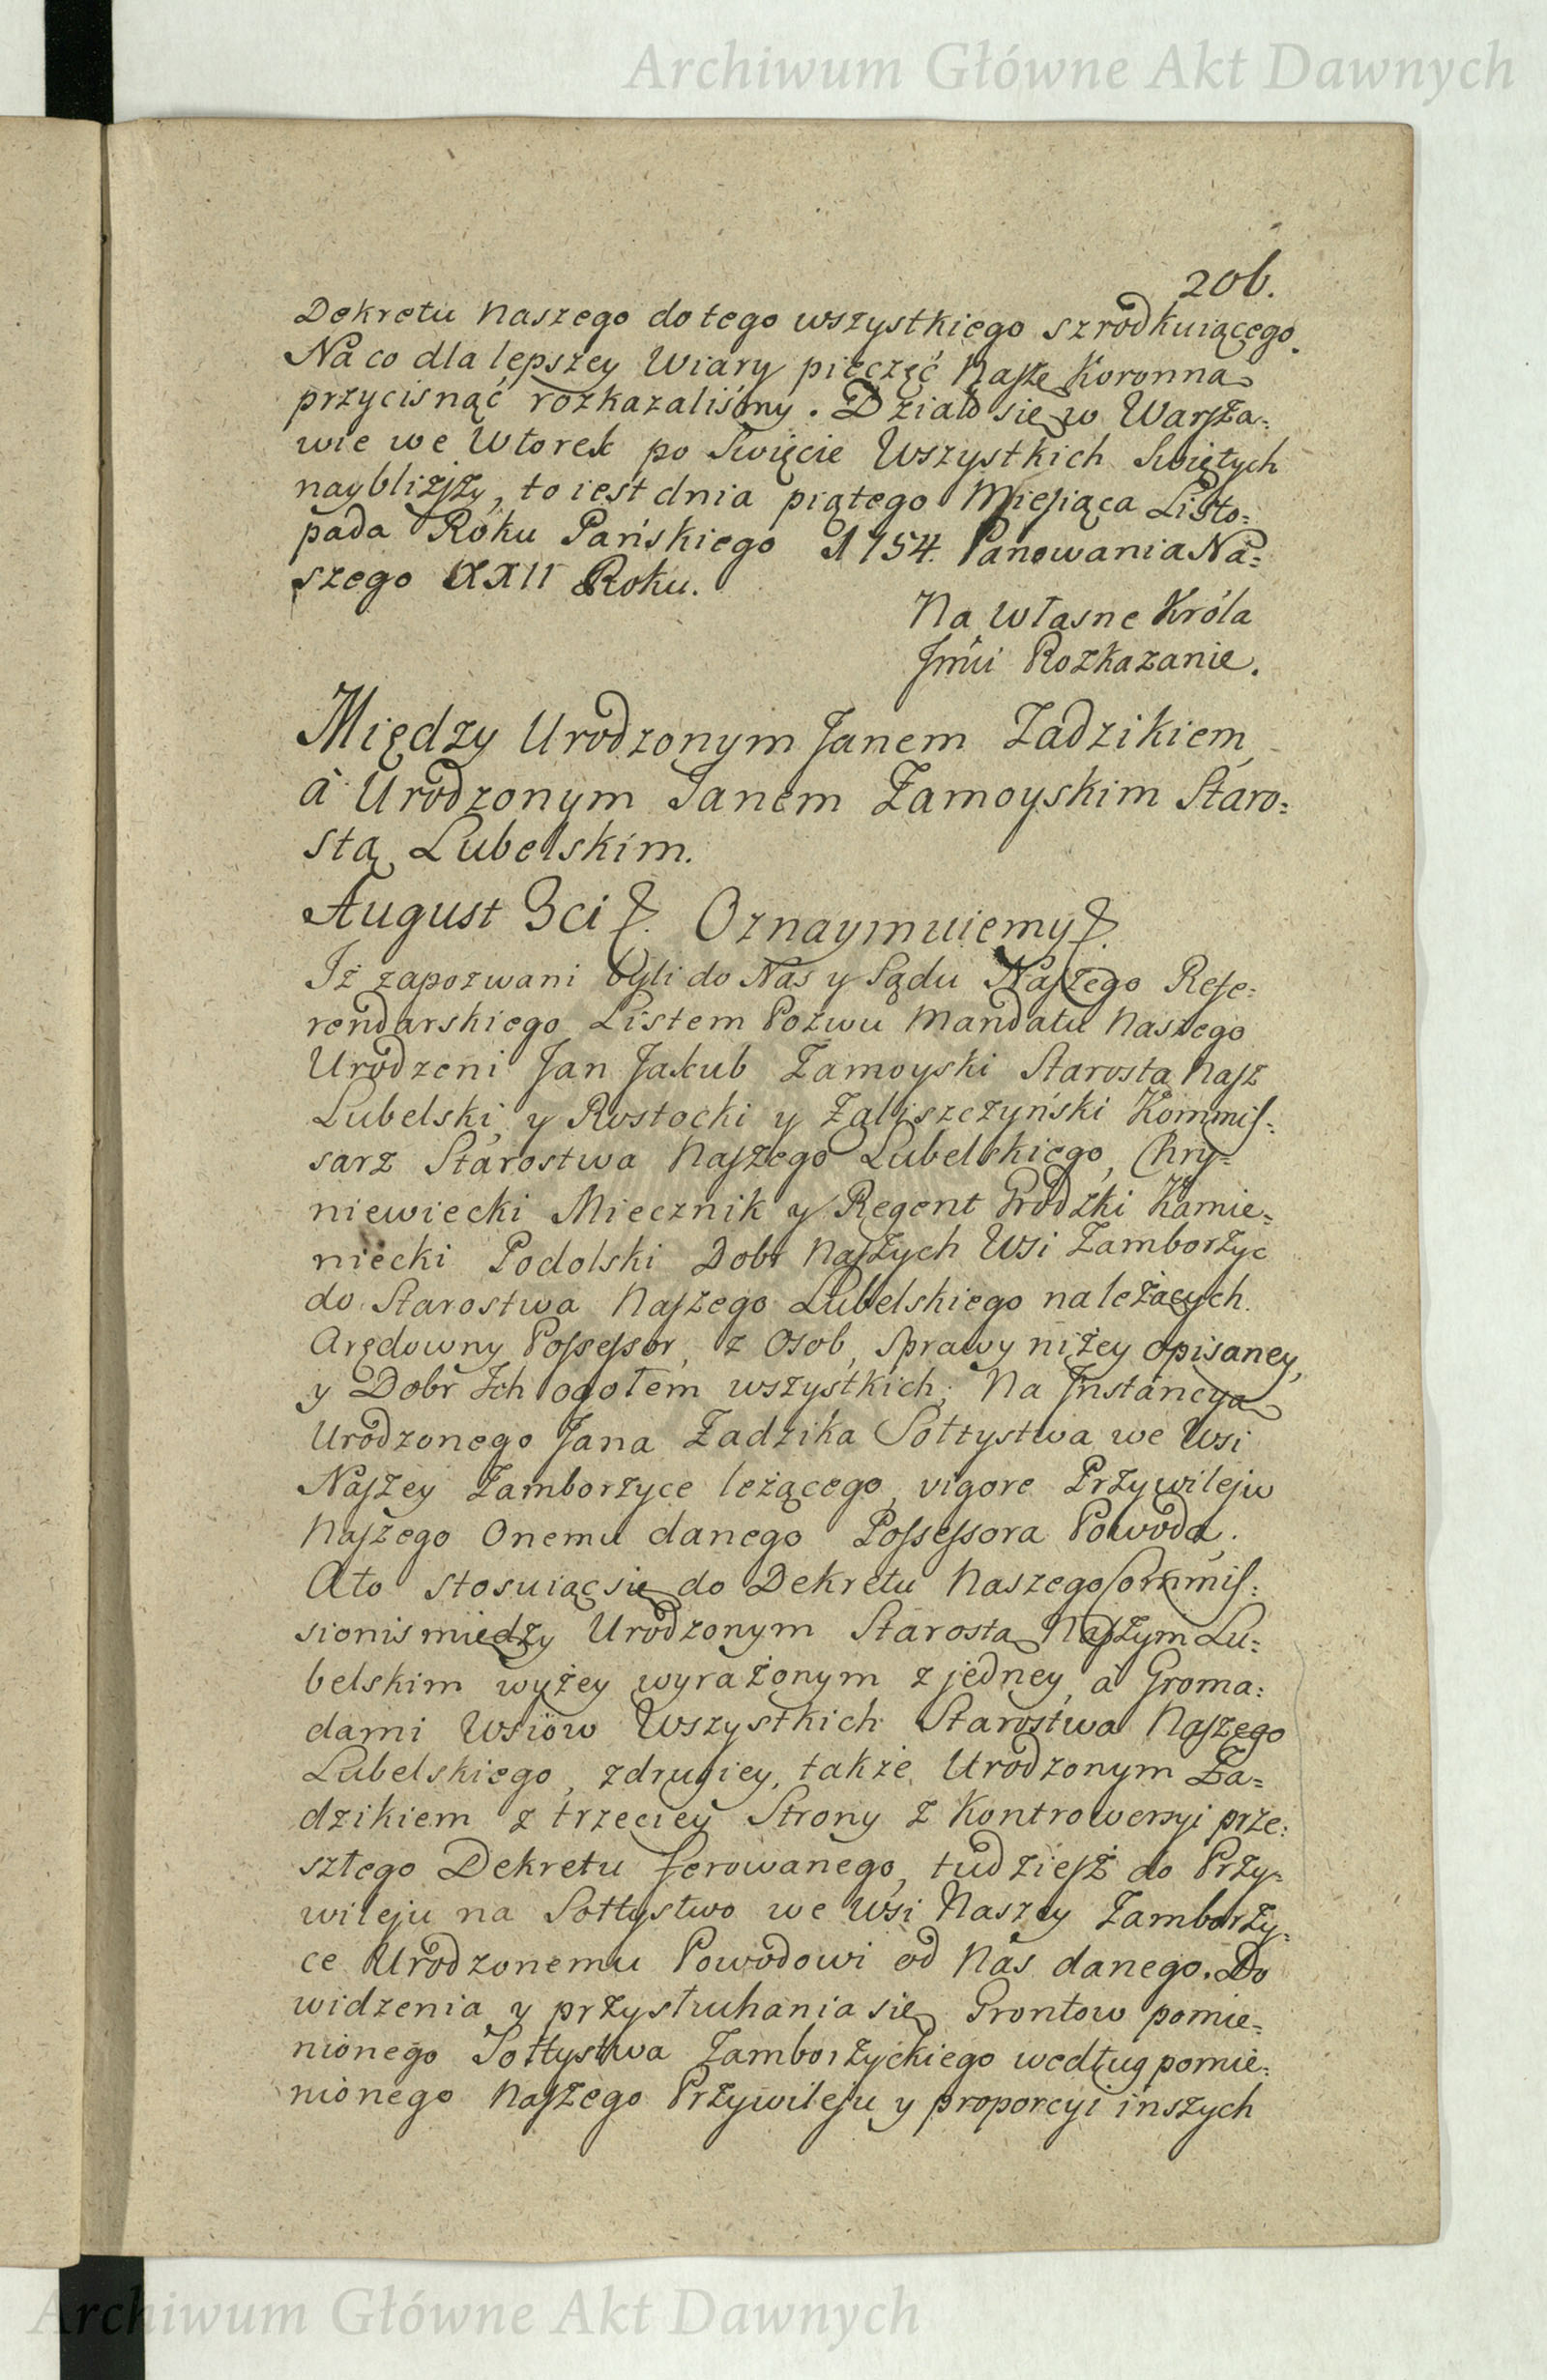 Archiwum Główne Akt Dawnych
206.
Dekretu Naszego do tego wszystkiego szrodkuiącego.
Na co dla lepszey Wiary pieczęć Naszę Koronną
przycisnąć rozkazaliśmy. Działo się w Warsza=
wie we Wtorek po Swięcie Wszystkich Swiętych
nayblizszy, to iest dnia piątego Miesiąca Listo=
pada Roku Pańskiego 1754. Panowania Na=
szego XXII Roku.
Na własne Króla
Jmći Rozkazanie.
Między Urodzonym Janem Zadzikiem,
à Urodzonym Janem Zamoyskim Staro=
stą Lubelskim.
August 3ci &. Oznaymuiemy &.
Iż zapozwani byli do Nas y Sądu Naszego Refe=
rendarskiego Listem Pozwu Mandatu Naszego
Urodzeni Jan Jakub Zamoyski Starosta Nasz
Lubelski, y Rostocki y Zaliszczyński Kommis=
sarz Starostwa Naszego Lubelskiego, Chry=
niewiecki Miecznik y Regent Grodzki Kamie=
niecki Podolski Dobr Naszych Wsi Zamborzyc
do Starostwa Naszego Lubelskiego należących.
Arędowny Possessor, z Osob, Sprawy niżey opisaney,
y Dobr Ich ogołem wszystkich, Na Jnstancyą
Urodzonego Jana Zadzika Sołtystwa we Wsi
Naszey Zamborzyce leżącego, vigore Przywileju
Naszego Onemu danego Possessora Powoda.
A to stosuiąc się do Dekretu Naszego Commis=
sionis między Urodzonym Starostą Naszym Lu=
belskim wyżey wyrażonym z jedney, à Groma=
dami Wsiow Wszystkich Starostwa Naszego
Lubelskiego, z drugiey, także Urodzonym Za=
dzikiem z trzeciey Strony z Kontrowersyi prze=
szłego Dekretu ferowanego, tudziesz do Przy=
wileju na Sołtystwo we Wsi Naszey Zamborzy=
ce Urodzonemu Powodowi od Nas danego. Do
widzenia y przysłuhania się Grontow pomie=
nionego Sołtystwa Zamborzyckiego według pomie=
nionego Naszego Przywileju y proporcyi inszych
Archiwum Główne Akt Dawnych